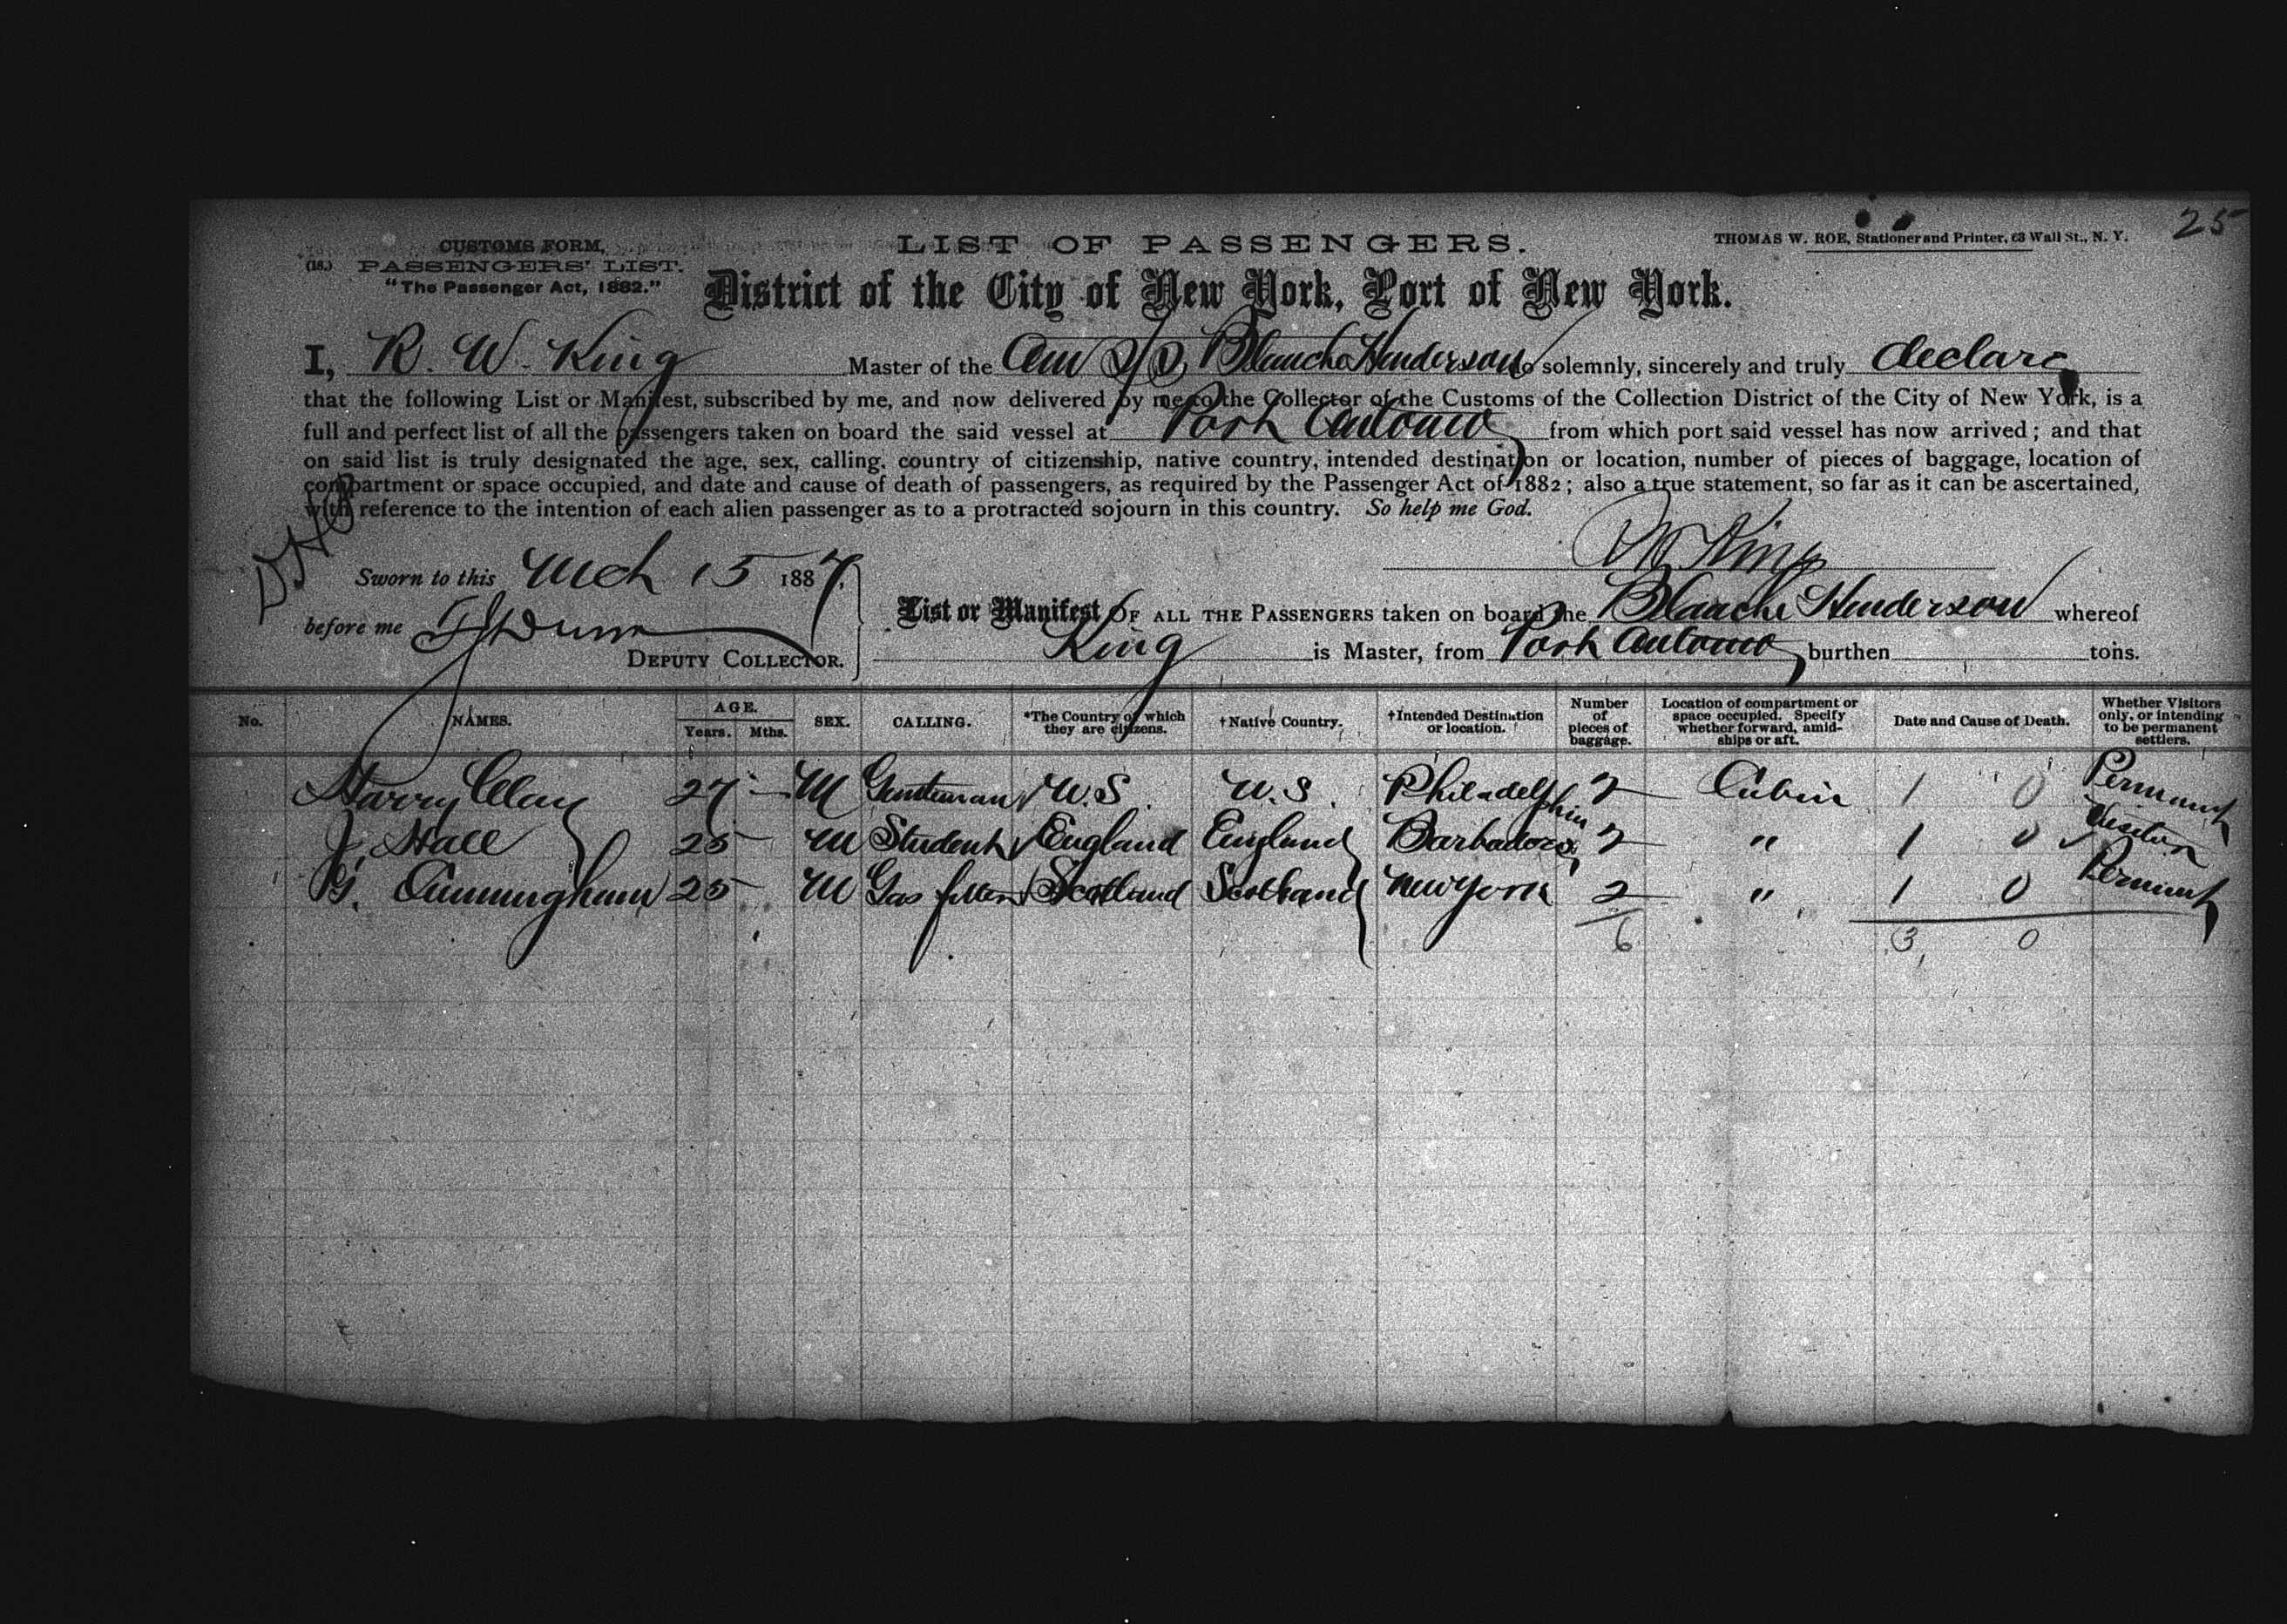 25
CUSTOMS FORM,
(18.) PASSENGERS' LIST.
"The Passenger Act, 1882."
LIST OF PASSENGERS.
THOMAS W. ROE, Stationer and Printer, 63 Wall St., N. Y.
District of the City of New York, Port of New York.
I, R. W. King Master of the Am S/S Blanche Henderson do solemnly, sincerely and truly declare
that the following List or Manifest, subscribed by me, and now delivered by me to the Collector of the Customs of the Collection District of the City of New York, is a
full and perfect list of all the passengers taken on board the said vessel at Port Antonio from which port said vessel has now arrived; and that
on said list is truly designated the age, sex, calling, country of citizenship, native country, intended destination or location, number of pieces of baggage, location of
compartment or space occupied, and date and cause of death of passengers, as required by the Passenger Act of 1882; also a true statement, so far as it can be ascertained,
with reference to the intention of each alien passenger as to a protracted sojourn in this country. So help me God.
R W King
Sworn to this Mch 15 1887.
before me Dunn
DEPUTY COLLECTOR.
List or Manifest OF ALL THE PASSENGERS taken on board the Blanche Henderson whereof
King is Master, from Port Antonio burthen tons.
No. NAMES. AGE. Years. Mths. SEX. CALLING. *The Country of which they are citizens. †Native Country. †Intended Destination or location. Number of pieces of baggage. Location of compartment or space occupied. Specify whether forward, amidships or aft. Date and Cause of Death. Whether Visitors only, or intending to be permanent settlers.
Harry Clay 27 - M Gentleman U.S. U.S. Philadelphia 2 Cabin 1 0 Permanent
J. Hall 25 M Student England England Barbadoes 2 " 1 0 Visitor
G. Cunningham 25 M Gas fitter Scotland Scotland New York 2 " 1 0 Permanent
6 3 0